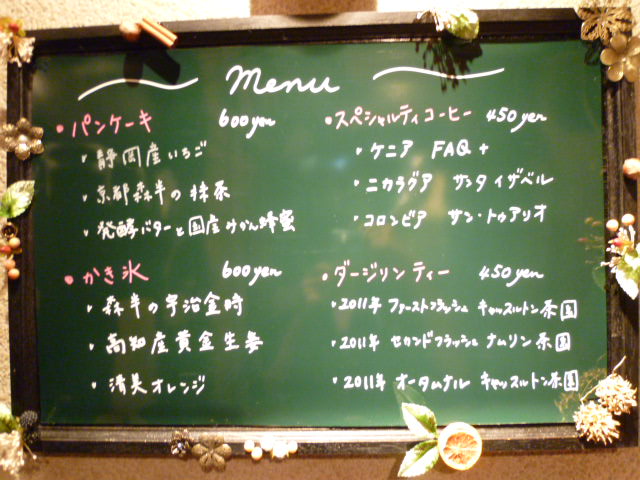 Menu
• パンケーキ 600yen
• 静岡産いちご
• 京都森半の抹茶
• 発酵バターと国産みかん蜂蜜
• かき氷 600yen
• 森半の宇治金時
• 高知産黄金生姜
• 清美オレンジ
• スペシャルティコーヒー 450yen
• ケニア FAQ+
• ニカラグア サンタイザベル
• コロンビア サン・トゥアリオ
• ダージリンティー 450yen
• 2011年 ファーストフラッシュ キャッスルトン茶園
• 2011年 セカンドフラッシュ ナムリン茶園
• 2011年 オータムナル キャッスルトン茶園